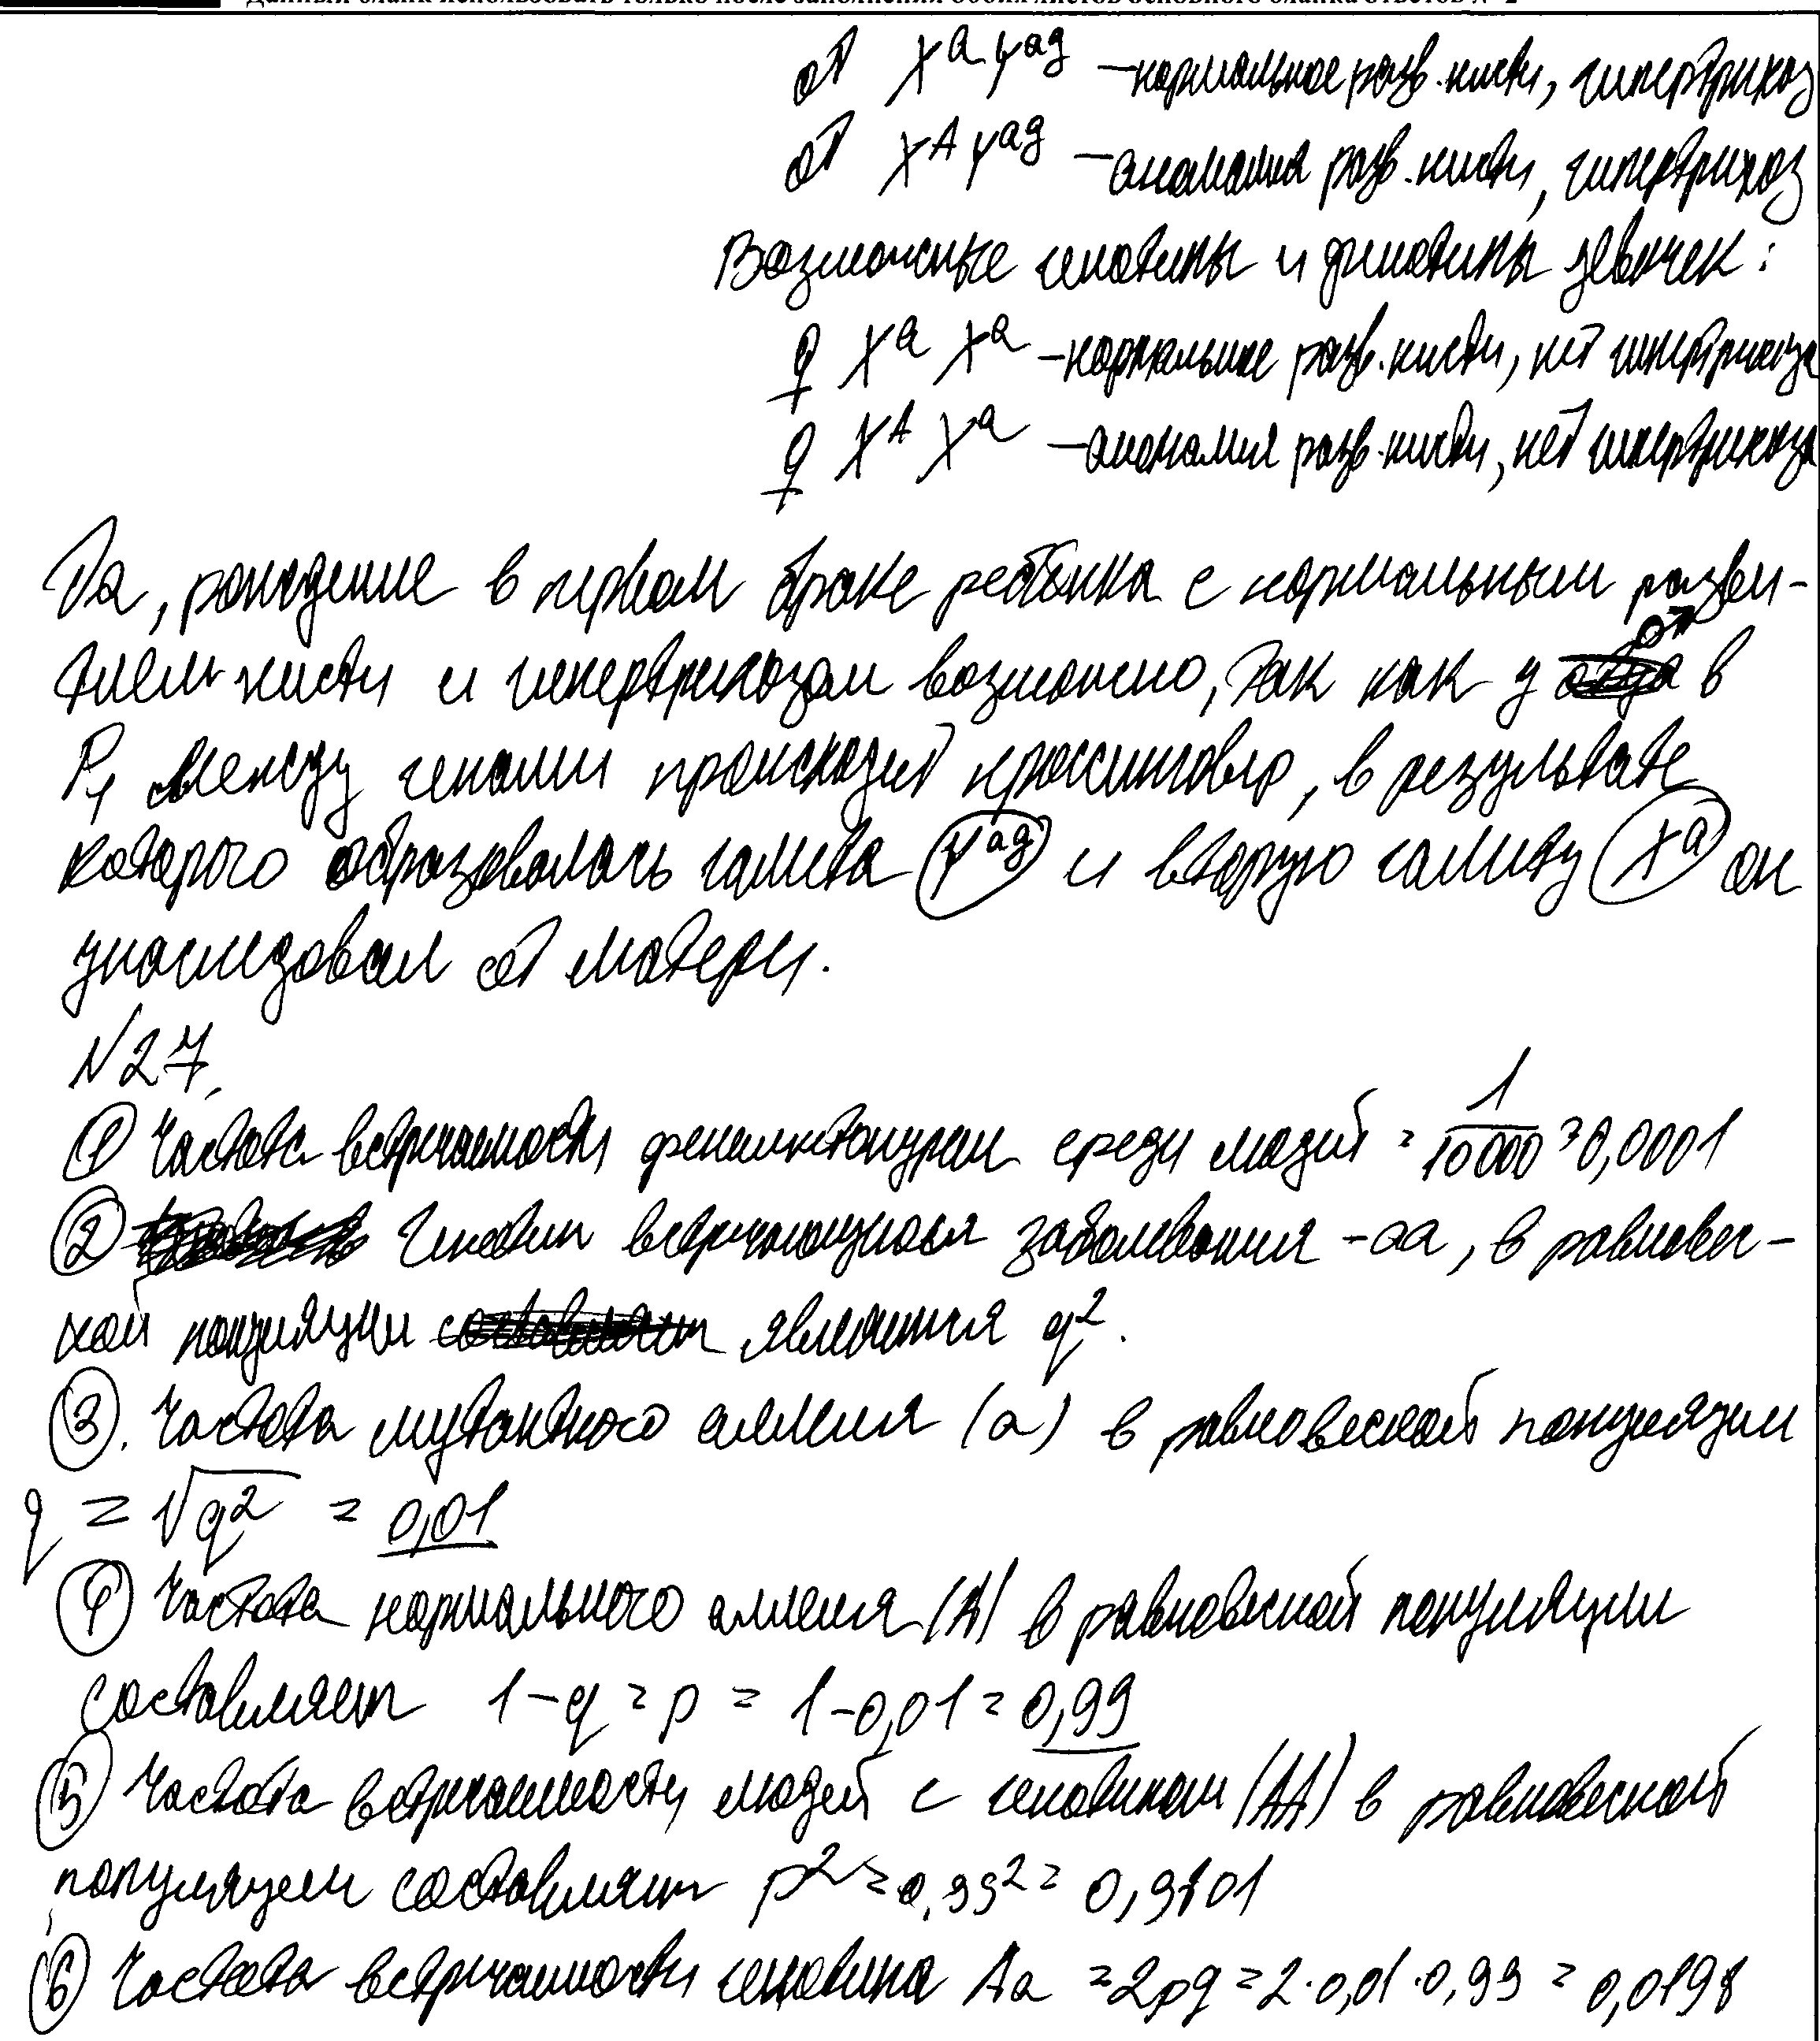 Данный бланк использовать только после заполнения обоих листов основного бланка ответов № 2
♂ XᵃYᵃᵍ – нормальное разв. кисти, гипертрихоз
♂ XᴬYᵃᵍ – аномалия разв. кисти, гипертрихоз
Возможные генотипы и фенотипы девочек:
♀ XᵃXᵃ – нормальное разв. кисти, нет гипертрихоза
♀ XᴬXᵃ – аномалия разв. кисти, нет гипертрихоза
Да, рождение в первом браке ребёнка с нормальным разви-
тием кисти и гипертрихозом возможно, так как у ♂ в
P₁ между генами происходит кроссинговер, в результате
которого образовалась гамета Yᵃᵍ и вторую гамету Xᵃ он
унаследовал от матери.
№27.
① Частота встречаемости фенилкетонурии среди людей = 1/10000 = 0,0001
② Генотип встречающегося заболевания - аа, в равновес-
ной популяции является q².
③. Частота мутантного аллеля (а) в равновесной популяции
q = √q² = 0,01
④ Частота нормального аллеля (А) в равновесной популяции
составляет 1-q = p = 1-0,01 = 0,99
⑤ Частота встречаемости людей с генотипом (АА) в равновесной
популяции составляет p² = 0,99² = 0,9801
⑥ Частота встречаемости генотипа Аа = 2pq = 2·0,01·0,99 = 0,0198